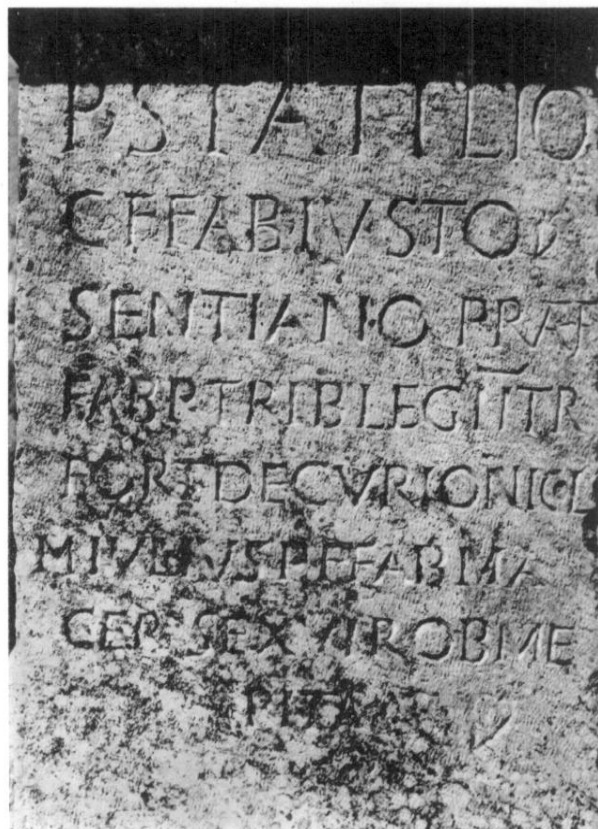 P STATILIO
C F FAB IVSTO
SENTIANO PRAEF
FAB P TRIB LEG II TR
FORT DECVRIONI C L
M IVLIVS P F FAB MA
CER SEXVIR OB ME
RITA